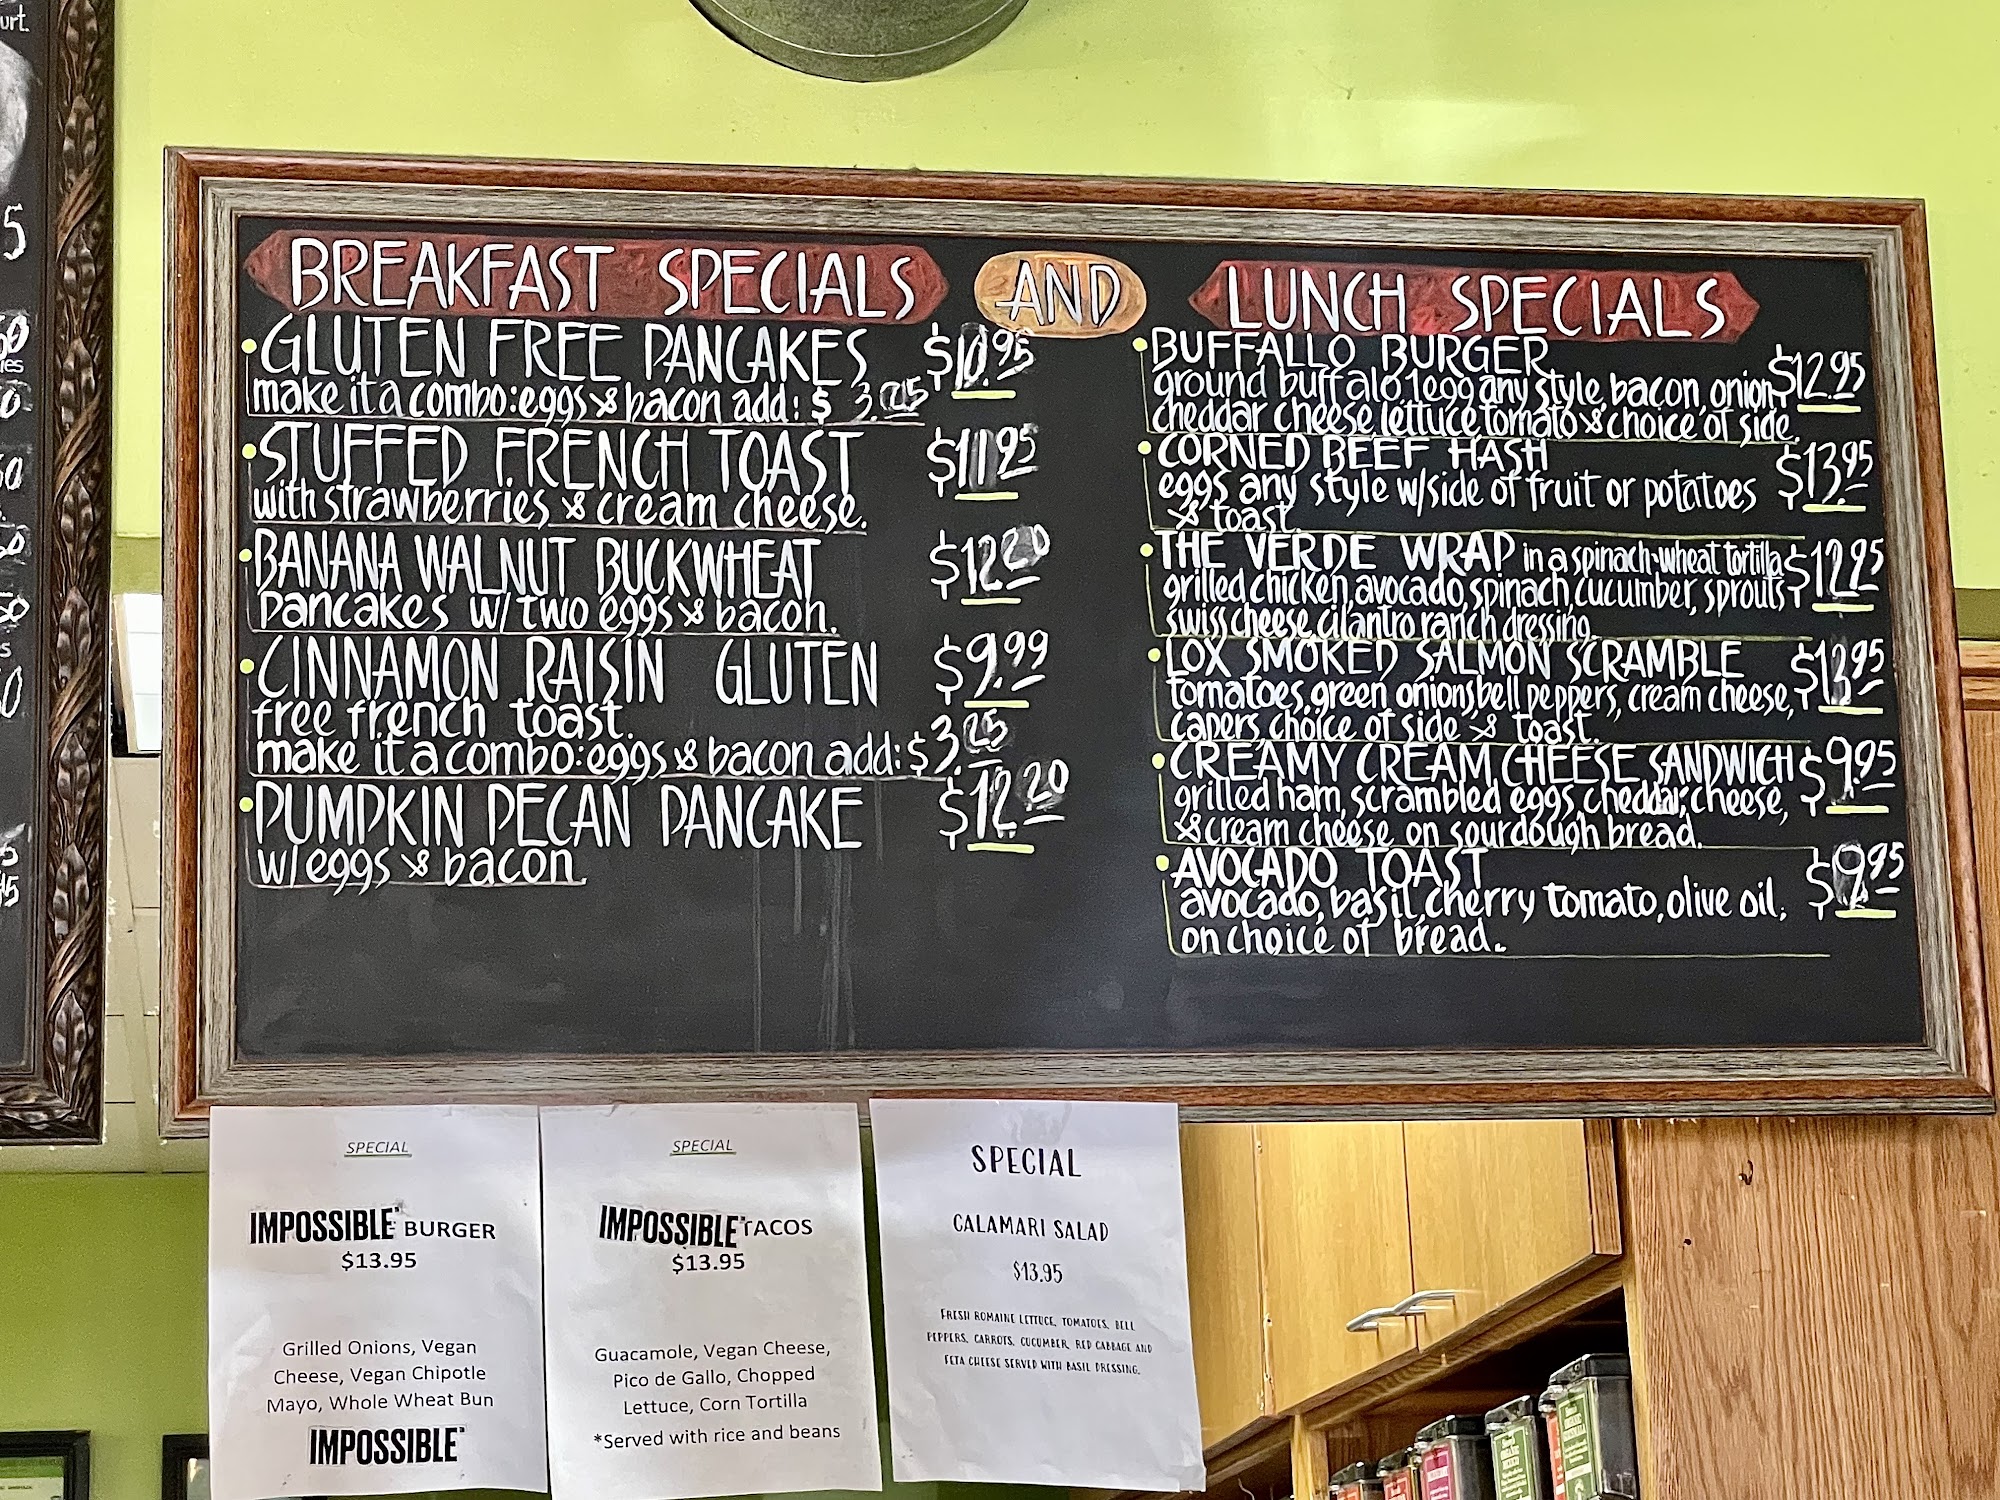 BREAKFAST SPECIALS AND LUNCH SPECIALS
GLUTEN FREE PANCAKES $10.95
make it a combo: eggs & bacon add: $ 3.25
STUFFED FRENCH TOAST $11.95
with strawberries & cream cheese.
BANANA WALNUT BUCKWHEAT $12.20
pancakes w/ two eggs & bacon.
CINNAMON RAISIN GLUTEN $9.99
free french toast.
make it a combo: eggs & bacon add: $3.25
PUMPKIN PECAN PANCAKE $12.20
w/ eggs & bacon.
BUFFALLO BURGER $12.95
ground buffalo, 1 egg any style, bacon, onion,
cheddar cheese, lettuce, tomato & choice of side.
CORNED BEEF HASH $13.95
eggs any style w/side of fruit or potatoes
& toast.
THE VERDE WRAP in a spinach-wheat tortilla $12.25
grilled chicken, avocado, spinach, cucumber, sprouts
swiss cheese, cilantro ranch dressing.
LOX SMOKED SALMON SCRAMBLE $13.95
tomatoes, green onions, bell peppers, cream cheese,
capers, choice of side & toast.
CREAMY CREAM CHEESE SANDWICH $9.95
grilled ham, scrambled eggs, cheddar cheese,
& cream cheese on sourdough bread.
AVOCADO TOAST $9.95
avocado, basil, cherry tomato, olive oil,
on choice of bread.
SPECIAL
IMPOSSIBLE™ BURGER
$13.95
Grilled Onions, Vegan
Cheese, Vegan Chipotle
Mayo, Whole Wheat Bun
IMPOSSIBLE™
SPECIAL
IMPOSSIBLE™ TACOS
$13.95
Guacamole, Vegan Cheese,
Pico de Gallo, Chopped
Lettuce, Corn Tortilla
*Served with rice and beans
SPECIAL
CALAMARI SALAD
$13.95
FRESH ROMAINE LETTUCE, TOMATOES, BELL
PEPPERS, CARROTS, CUCUMBER, RED CABBAGE AND
FETA CHEESE SERVED WITH BASIL DRESSING.